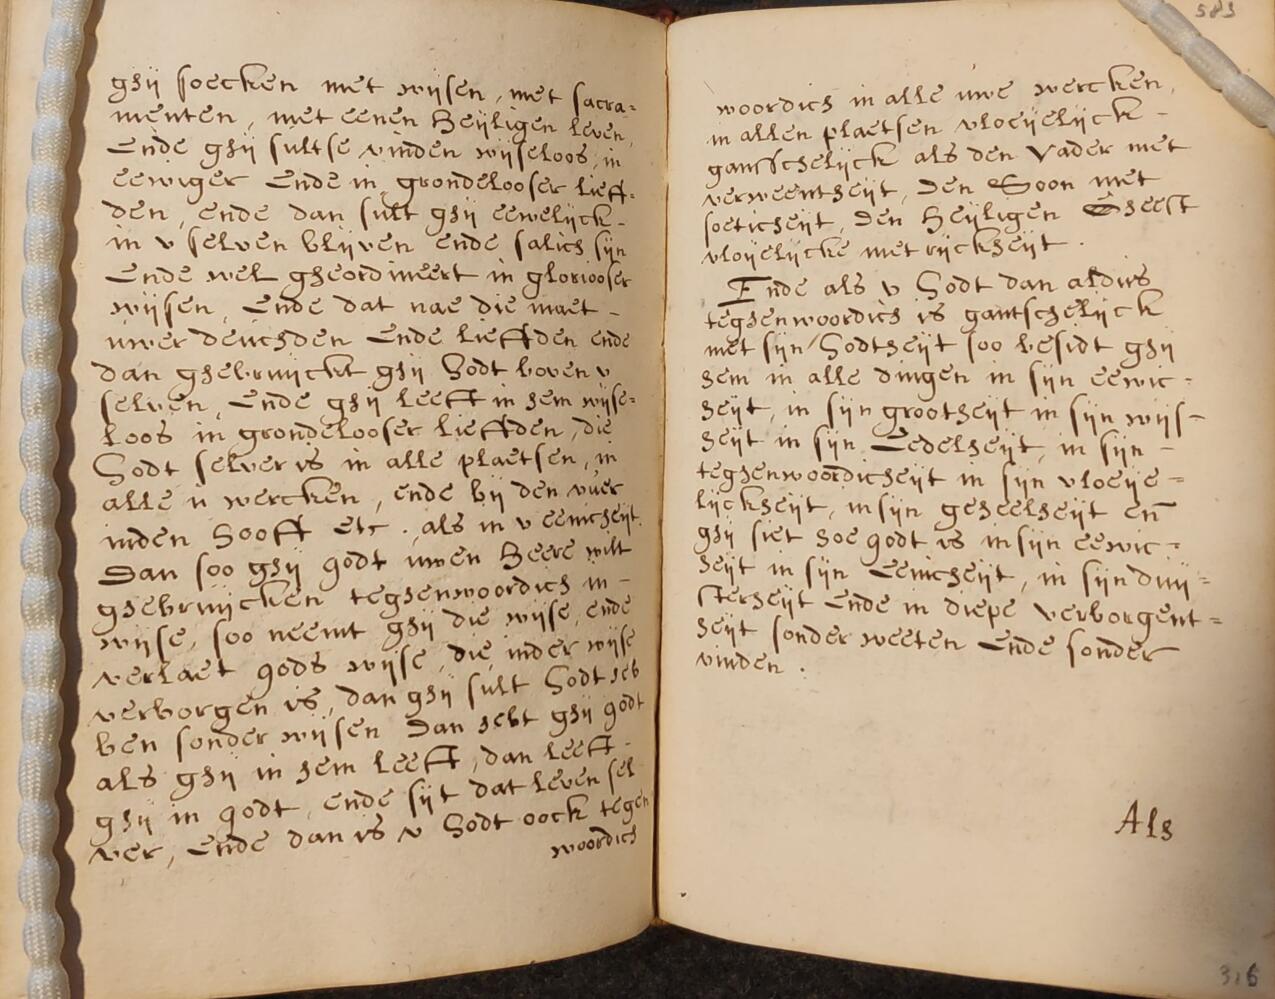 ghij soecken met wijsen, met sacra=
menten, met eenen heijligen leven,
Ende ghij sultse vinden wijseloos, in
eewiger Ende in grondelooser lieff=
den, ende dan sult ghij eewelijck-
in v selven blijven ende salich sijn
Ende wel gheordineert in gloriooser
wijsen, Ende dat nae die maet-
uwer deuchden Ende lieffden ende
dan ghebruijckt ghij Godt boven v
selven, Ende ghij leeft in hem wijse=
loos in grondelooser lieffden, die
Godt selver is in alle plaetsen, in
alle u wercken, ende bij den vuer
inden hooff etc. als in v eenicheijt.
Dan soo ghij godt uwen heere wilt
ghebruijcken teghenwoordich in-
wijse, soo neemt ghij die wijse, ende
verlaet gods wijse, die inder wijse
verborgen is, dan ghij sult Godt heb
ben sonder wijsen Dan hebt ghij godt
als ghij in hem leeft, dan leeft-
ghij in godt, ende sijt dat leven sel
ver, Ende dan is v Godt oock tegen
woordich
583
woordich in alle uwe wercken,
in allen plaetsen vloeijelijck-
gantschelijck als den Vader met
verweentheijt, den Soon met
soeticheijt, den heijligen Gheest
vloijelijcke met rijckheijt.
Ende als v Godt dan aldus
teghenwoordich is gantschelijck
met sijn Godtheijt soo besidt ghij
hem in alle dingen in sijn eewic=
heijt, in sijn grootheijt in sijn wijs-
heijt in sijn Eedelheijt, in sijn-
teghenwoordicheijt in sijn vloeije=
lijckheijt, in sijn geheelheijt en̄
ghij siet hoe godt is in sijn eewic=
heijt in sijn Eenicheijt, in sijn duij=
sterheijt Ende in diepe verborgent=
heijt sonder weeten Ende sonder
vinden.
Als
316